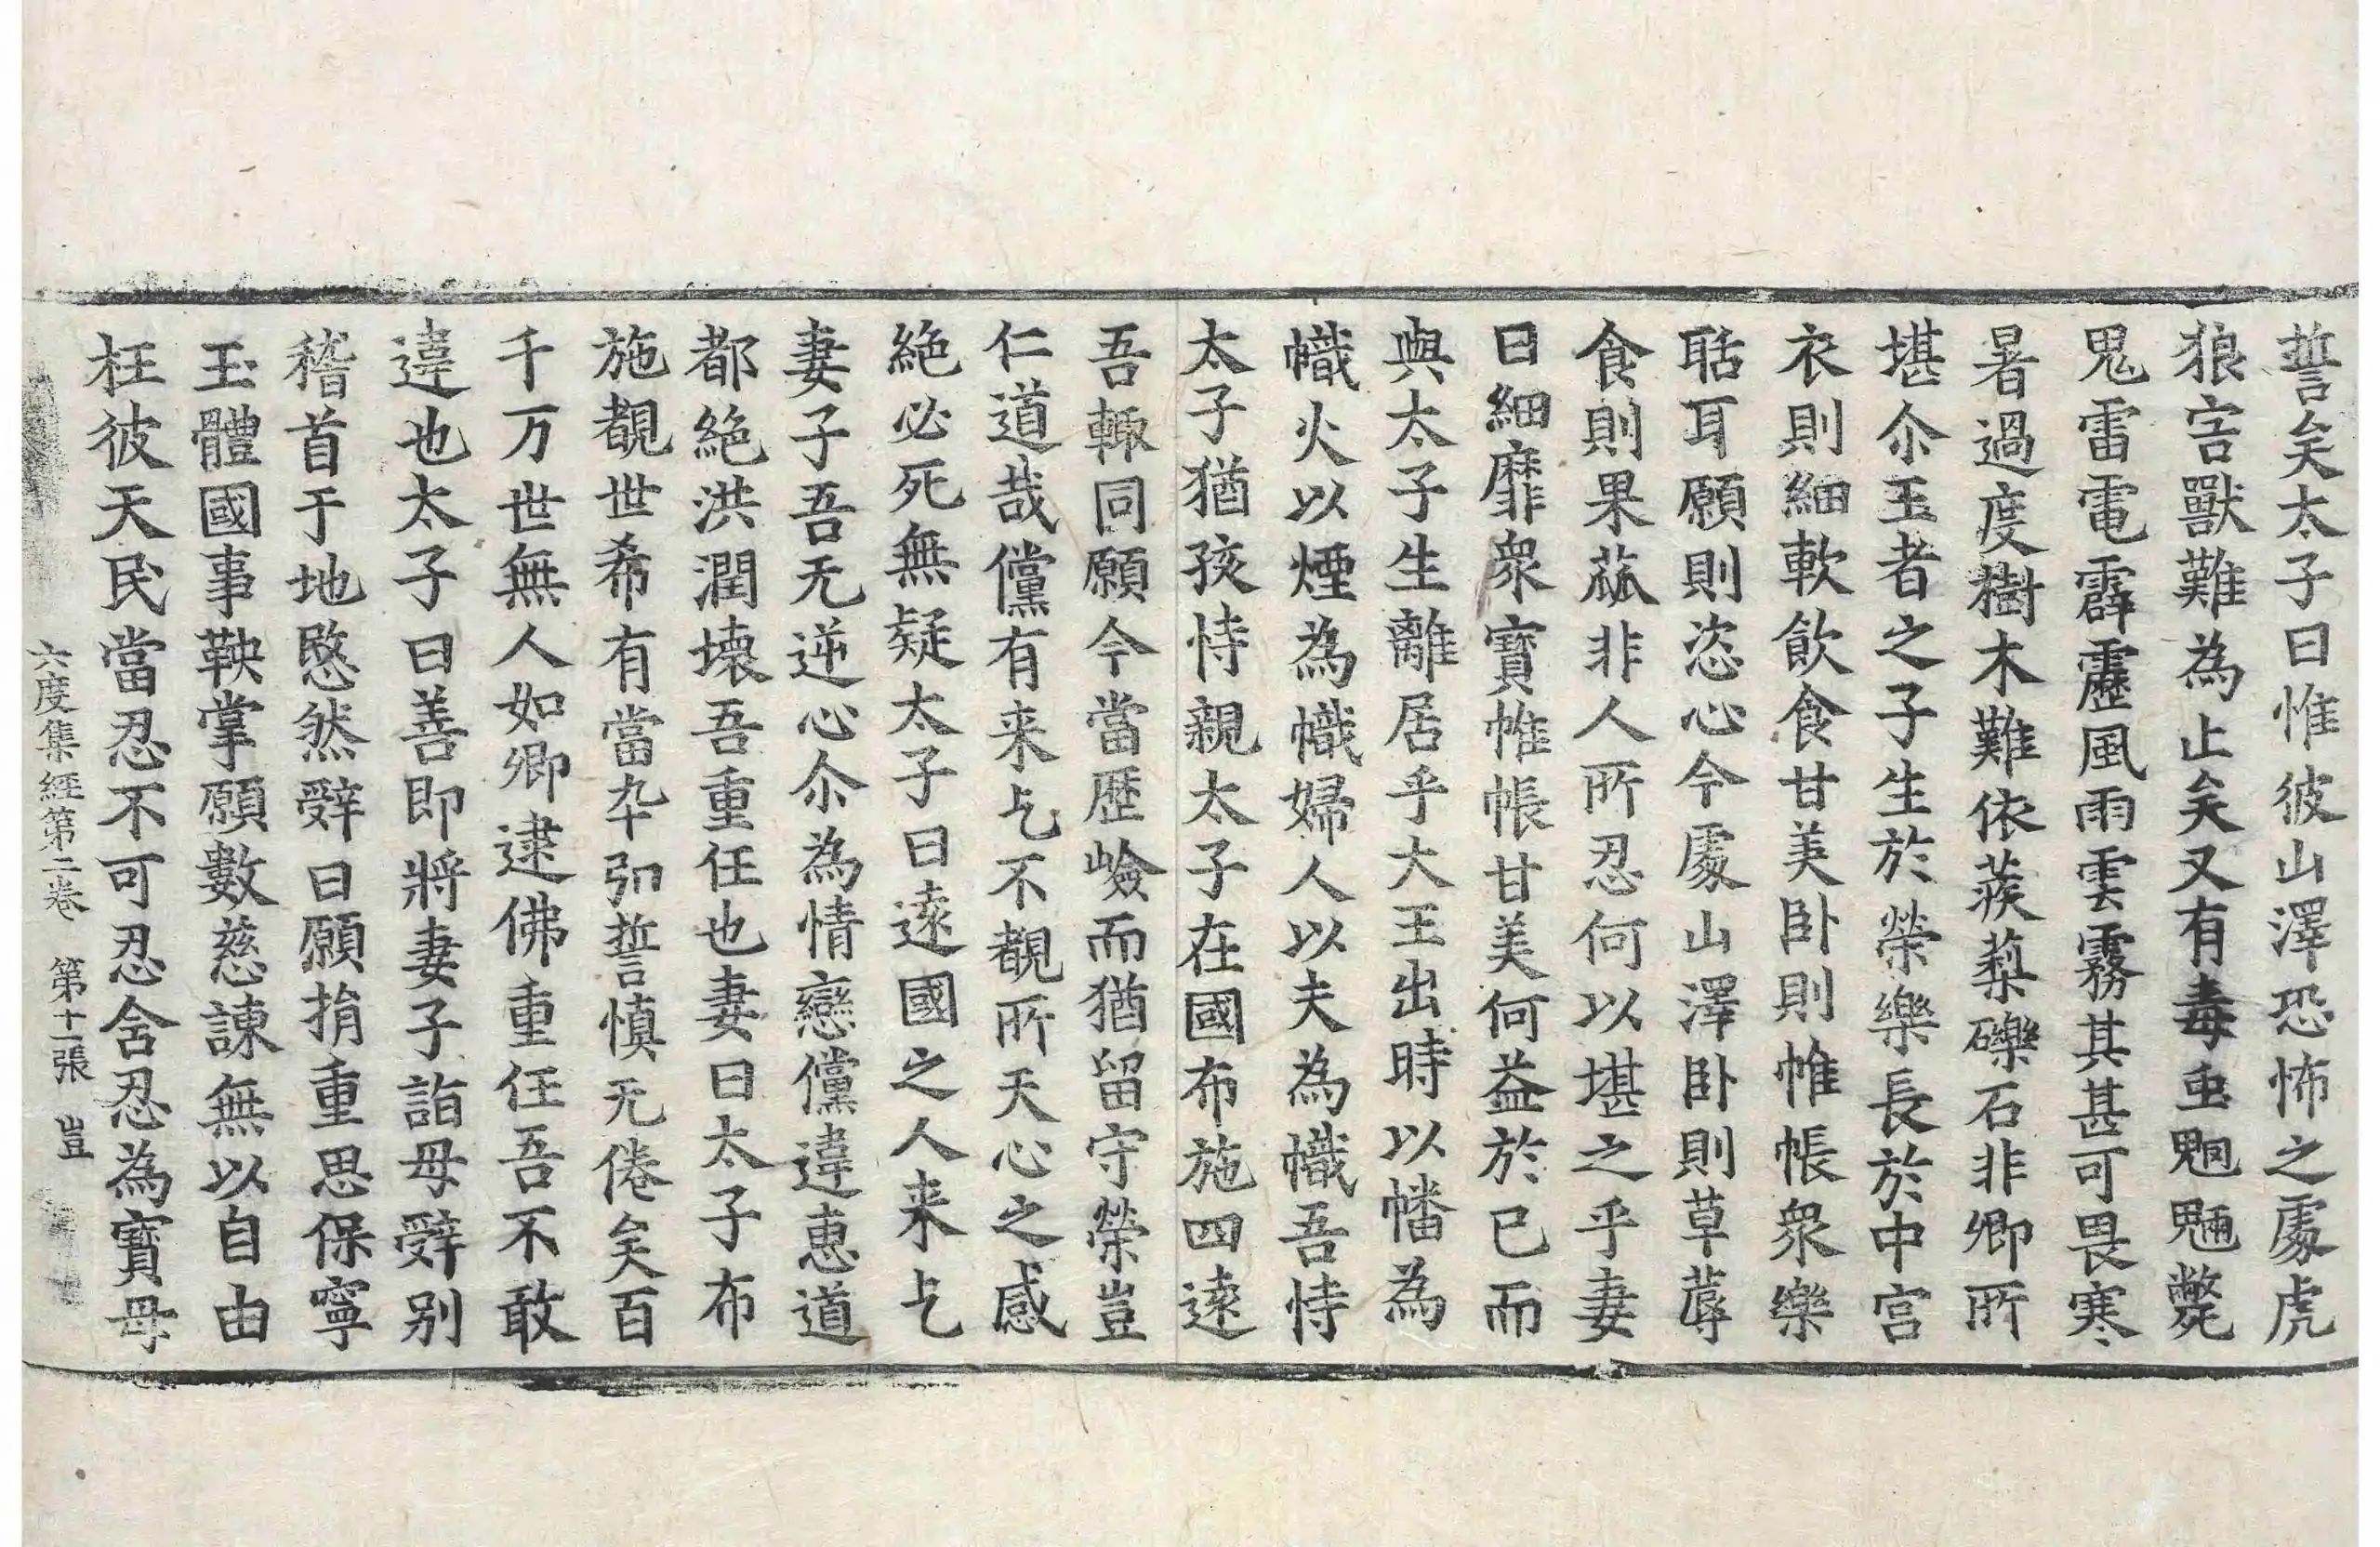 誓矣太子曰惟彼山澤恐怖之處虎
狼害獸難為止矣又有毒虫魍魎斃
鬼雷電霹靂風雨雲霧其甚可畏寒
暑過度樹木難依蒺蔾礫石非卿所
堪尒王者之子生於榮樂長於中宮
衣則細軟飲食甘美卧則帷帳衆樂
聒耳願則恣心今處山澤卧則草蓐
食則果蓏非人所忍何以堪之乎妻
曰細靡衆寶帷帳甘美何益於已而
與太子生離居乎大王出時以幡為
幟火以煙為幟婦人以夫為幟吾恃
太子猶孩恃親太子在國布施四遠
吾輙同願今當歷嶮而猶留守榮豈
仁道哉儻有来乞不覩所天心之感
絶必死無疑太子曰遠國之人来乞
妻子吾无逆心尒為情戀儻違惠道
都絶洪潤壞吾重任也妻曰太子布
施覩世希有當卒弘誓慎无倦矣百
千万世無人如卿逮佛重任吾不敢
違也太子曰善即將妻子詣母辤别
稽首于地愍然辤曰願捐重思保寧
玉體國事鞅掌願數慈諫無以自由
枉彼天民當忍不可忍舍忍為寶母
六度集經第二卷 第十一張 豈